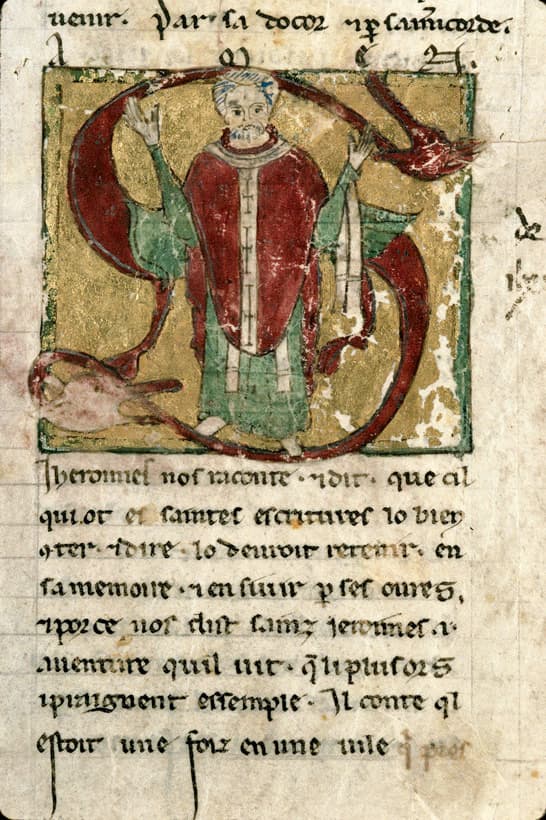 uenir. Par sa docor ⁊ ꝑ sa mis͛icorde.
A M E N.
Jheronmes nos raconte · ⁊ dit · que cil
qui ot es saintes escritures lo bien
9ter · ⁊ dire · lo deuroit retenir · en
sa memoire · ⁊ en siuir ꝑ ses oures,
⁊ por ce nos dist sainz jeronmes ·i·
auenture quil uit · q̄ li plusors
i praignent essemple · Il conte ql
estoit une foiz en une uile q̄ pres
de